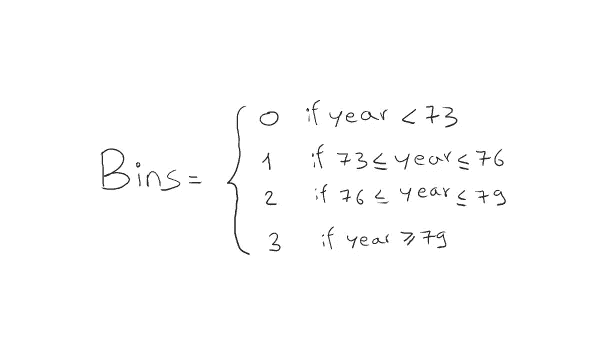 Bins =
0 if year < 73
1 if 73 ≤ year ≤ 76
2 if 76 ≤ year ≤ 79
3 if year ⩾ 79